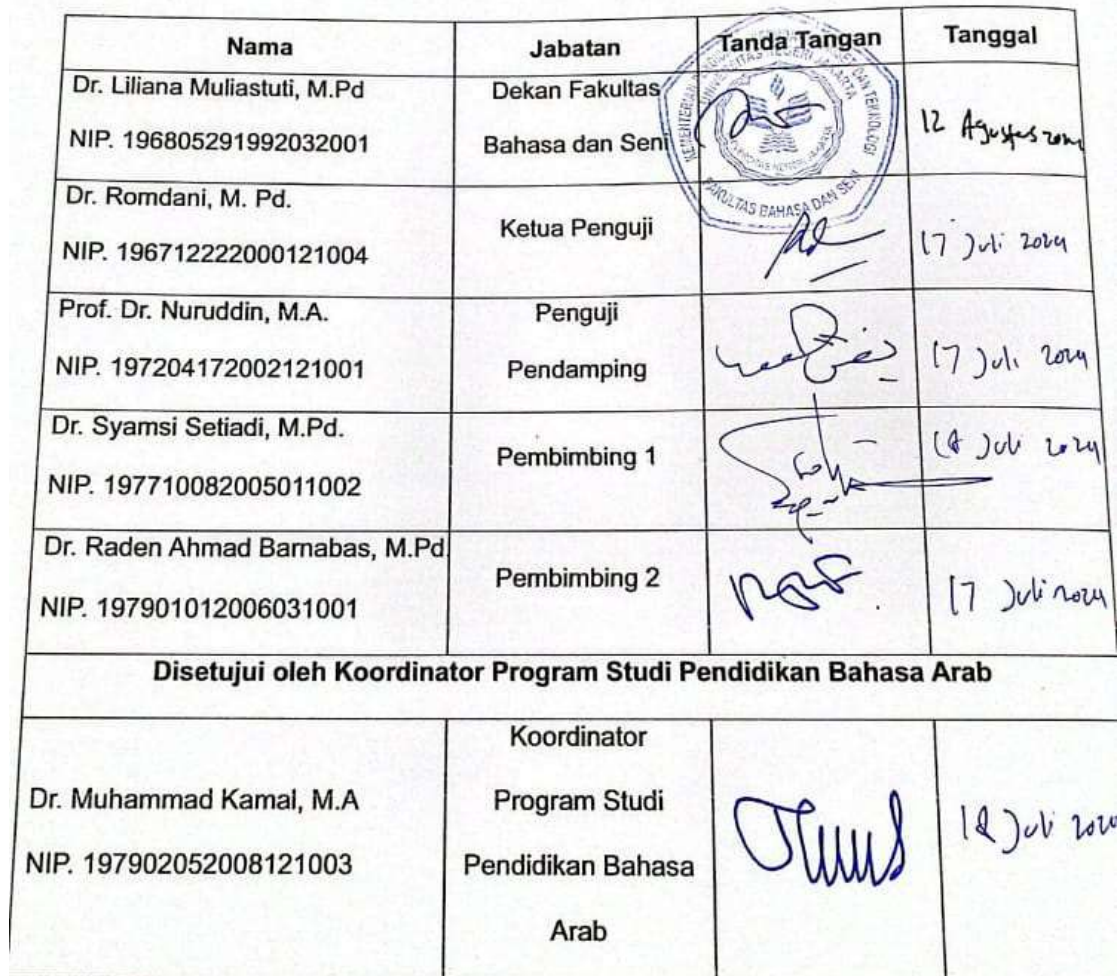 Nama Jabatan Tanda Tangan Tanggal
Dr. Liliana Muliastuti, M.Pd
NIP. 196805291992032001
Dekan Fakultas
Bahasa dan Seni
12 Agustus 2024
UNIVERSITAS NEGERI JAKARTA
FAKULTAS BAHASA DAN SENI
Dr. Romdani, M. Pd.
NIP. 196712222000121004
Ketua Penguji
17 Juli 2024
Prof. Dr. Nuruddin, M.A.
NIP. 197204172002121001
Penguji
Pendamping
17 Juli 2024
Dr. Syamsi Setiadi, M.Pd.
NIP. 197710082005011002
Pembimbing 1
18 Juli 2024
Dr. Raden Ahmad Barnabas, M.Pd
NIP. 197901012006031001
Pembimbing 2
17 Juli 2024
Disetujui oleh Koordinator Program Studi Pendidikan Bahasa Arab
Dr. Muhammad Kamal, M.A
NIP. 197902052008121003
Koordinator
Program Studi
Pendidikan Bahasa
Arab
18 Juli